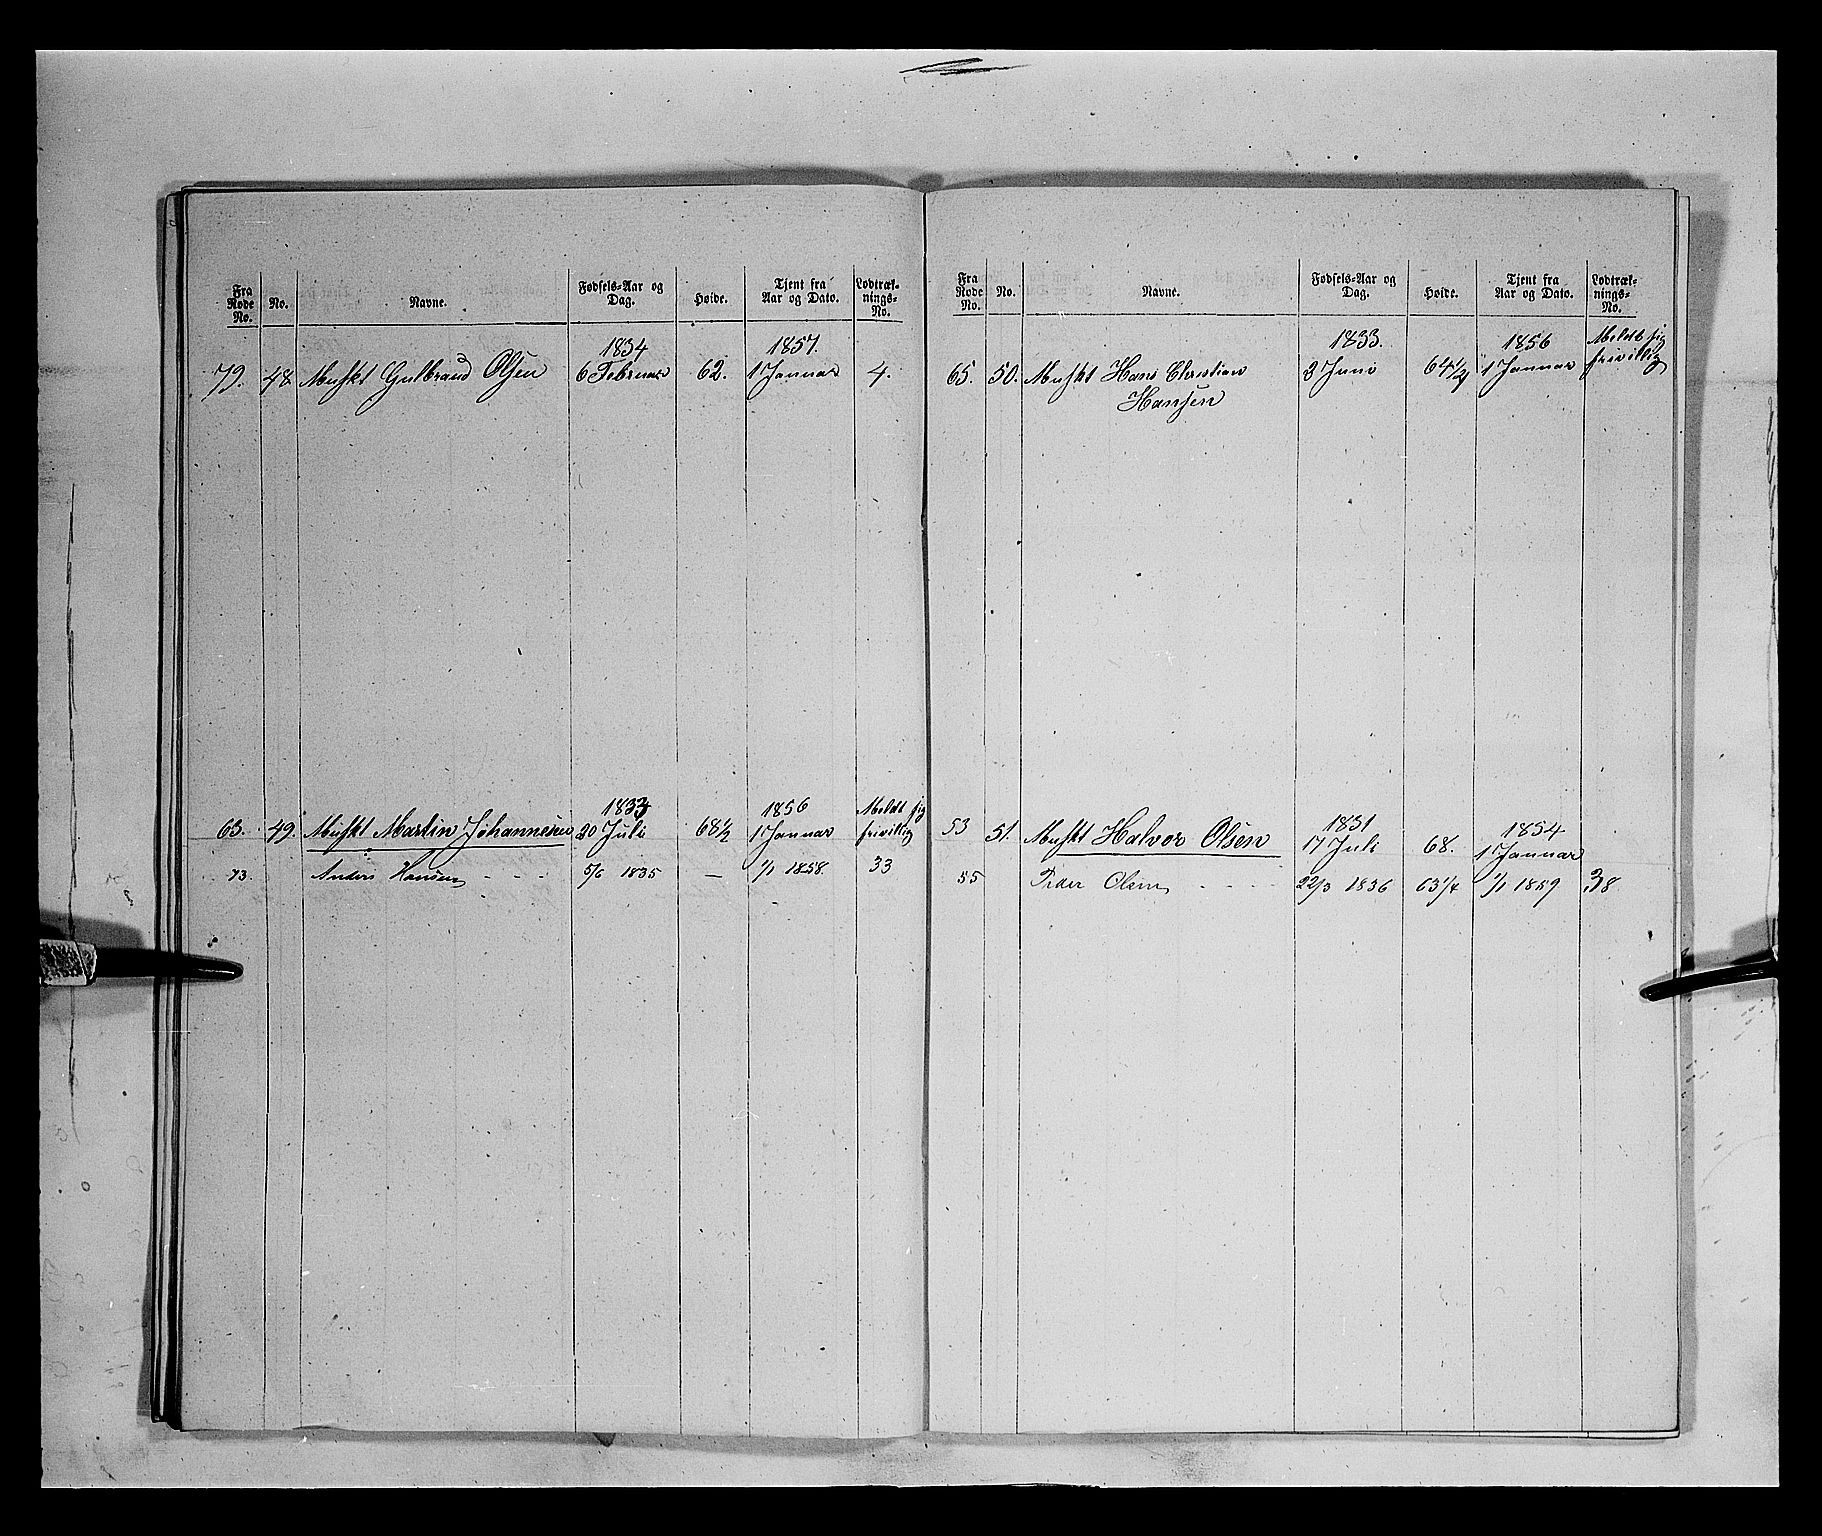 Fra Rode No. No. Navne. Fødsels-Aar og Dag. Høide. Tjent fra Aar og Dato. Lodtræk-nings-No.
1834 1857.
79. 48. Muskt Gulbrand Olsen 6 Februar 62. 1 Januar 4.
1833 1856 Meldt sig
63. 49. Muskt Martin Johannesen 20 Juli 68 1/2 1 Januar frivillig
73. Anders Hansen - - - 5/6 1835 — 1/1 1858. 33
Fra Rode No. No. Navne. Fødsels-Aar og Dag. Høide. Tjent fra Aar og Dato. Lodtræk-nings-No.
1833. 1856 Meldt sig
65. 50. Muskt Hans Christian 3 Juni 64 1/2 1 Januar frivillig
Hansen
1831 1854
53 51. Muskt Halvor Olsen 17 Juli 68. 1 Januar
55 Peder Olsen - - - - 22/3 1836 63 1/4 1/1 1859 38